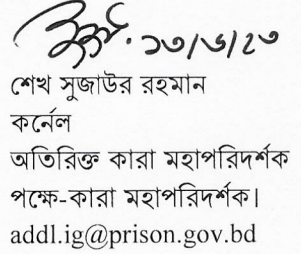 ১৩/৬/২৩
শেখ সুজাউর রহমান
কর্নেল
অতিরিক্ত কারা মহাপরিদর্শক
পক্ষে-কারা মহাপরিদর্শক।
addl.ig@prison.gov.bd